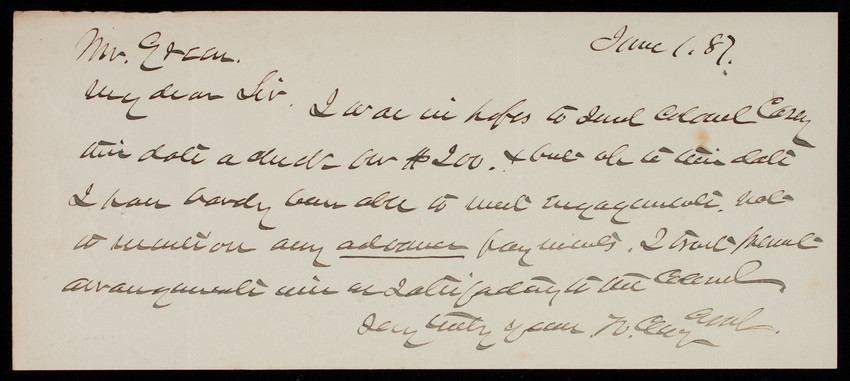 Mr. Green. June 1. 87.
My dear Sir. I was in hopes to send Colonel Casey
this date a check for $200. & but up to this date
I have hardly been able to meet engagements. not
to mention any advance payments. I trust present
arrangements will be satisfactory to the Colonel.
Very truly yours.